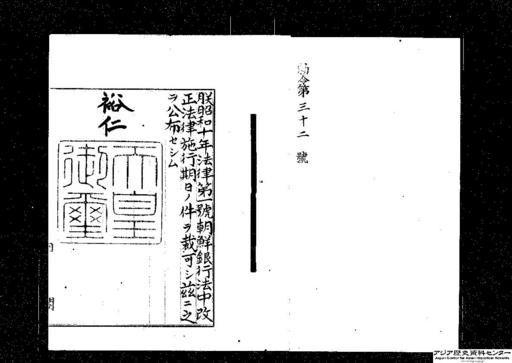 勅令第三十二號
朕昭和十年法律第一號朝鮮銀行法中改
正法律施行期日ノ件ヲ裁可シ茲ニ之
ヲ公布セシム
裕仁
天皇
御璽
アジア歴史資料センター
Japan Center for Asian Historical Records